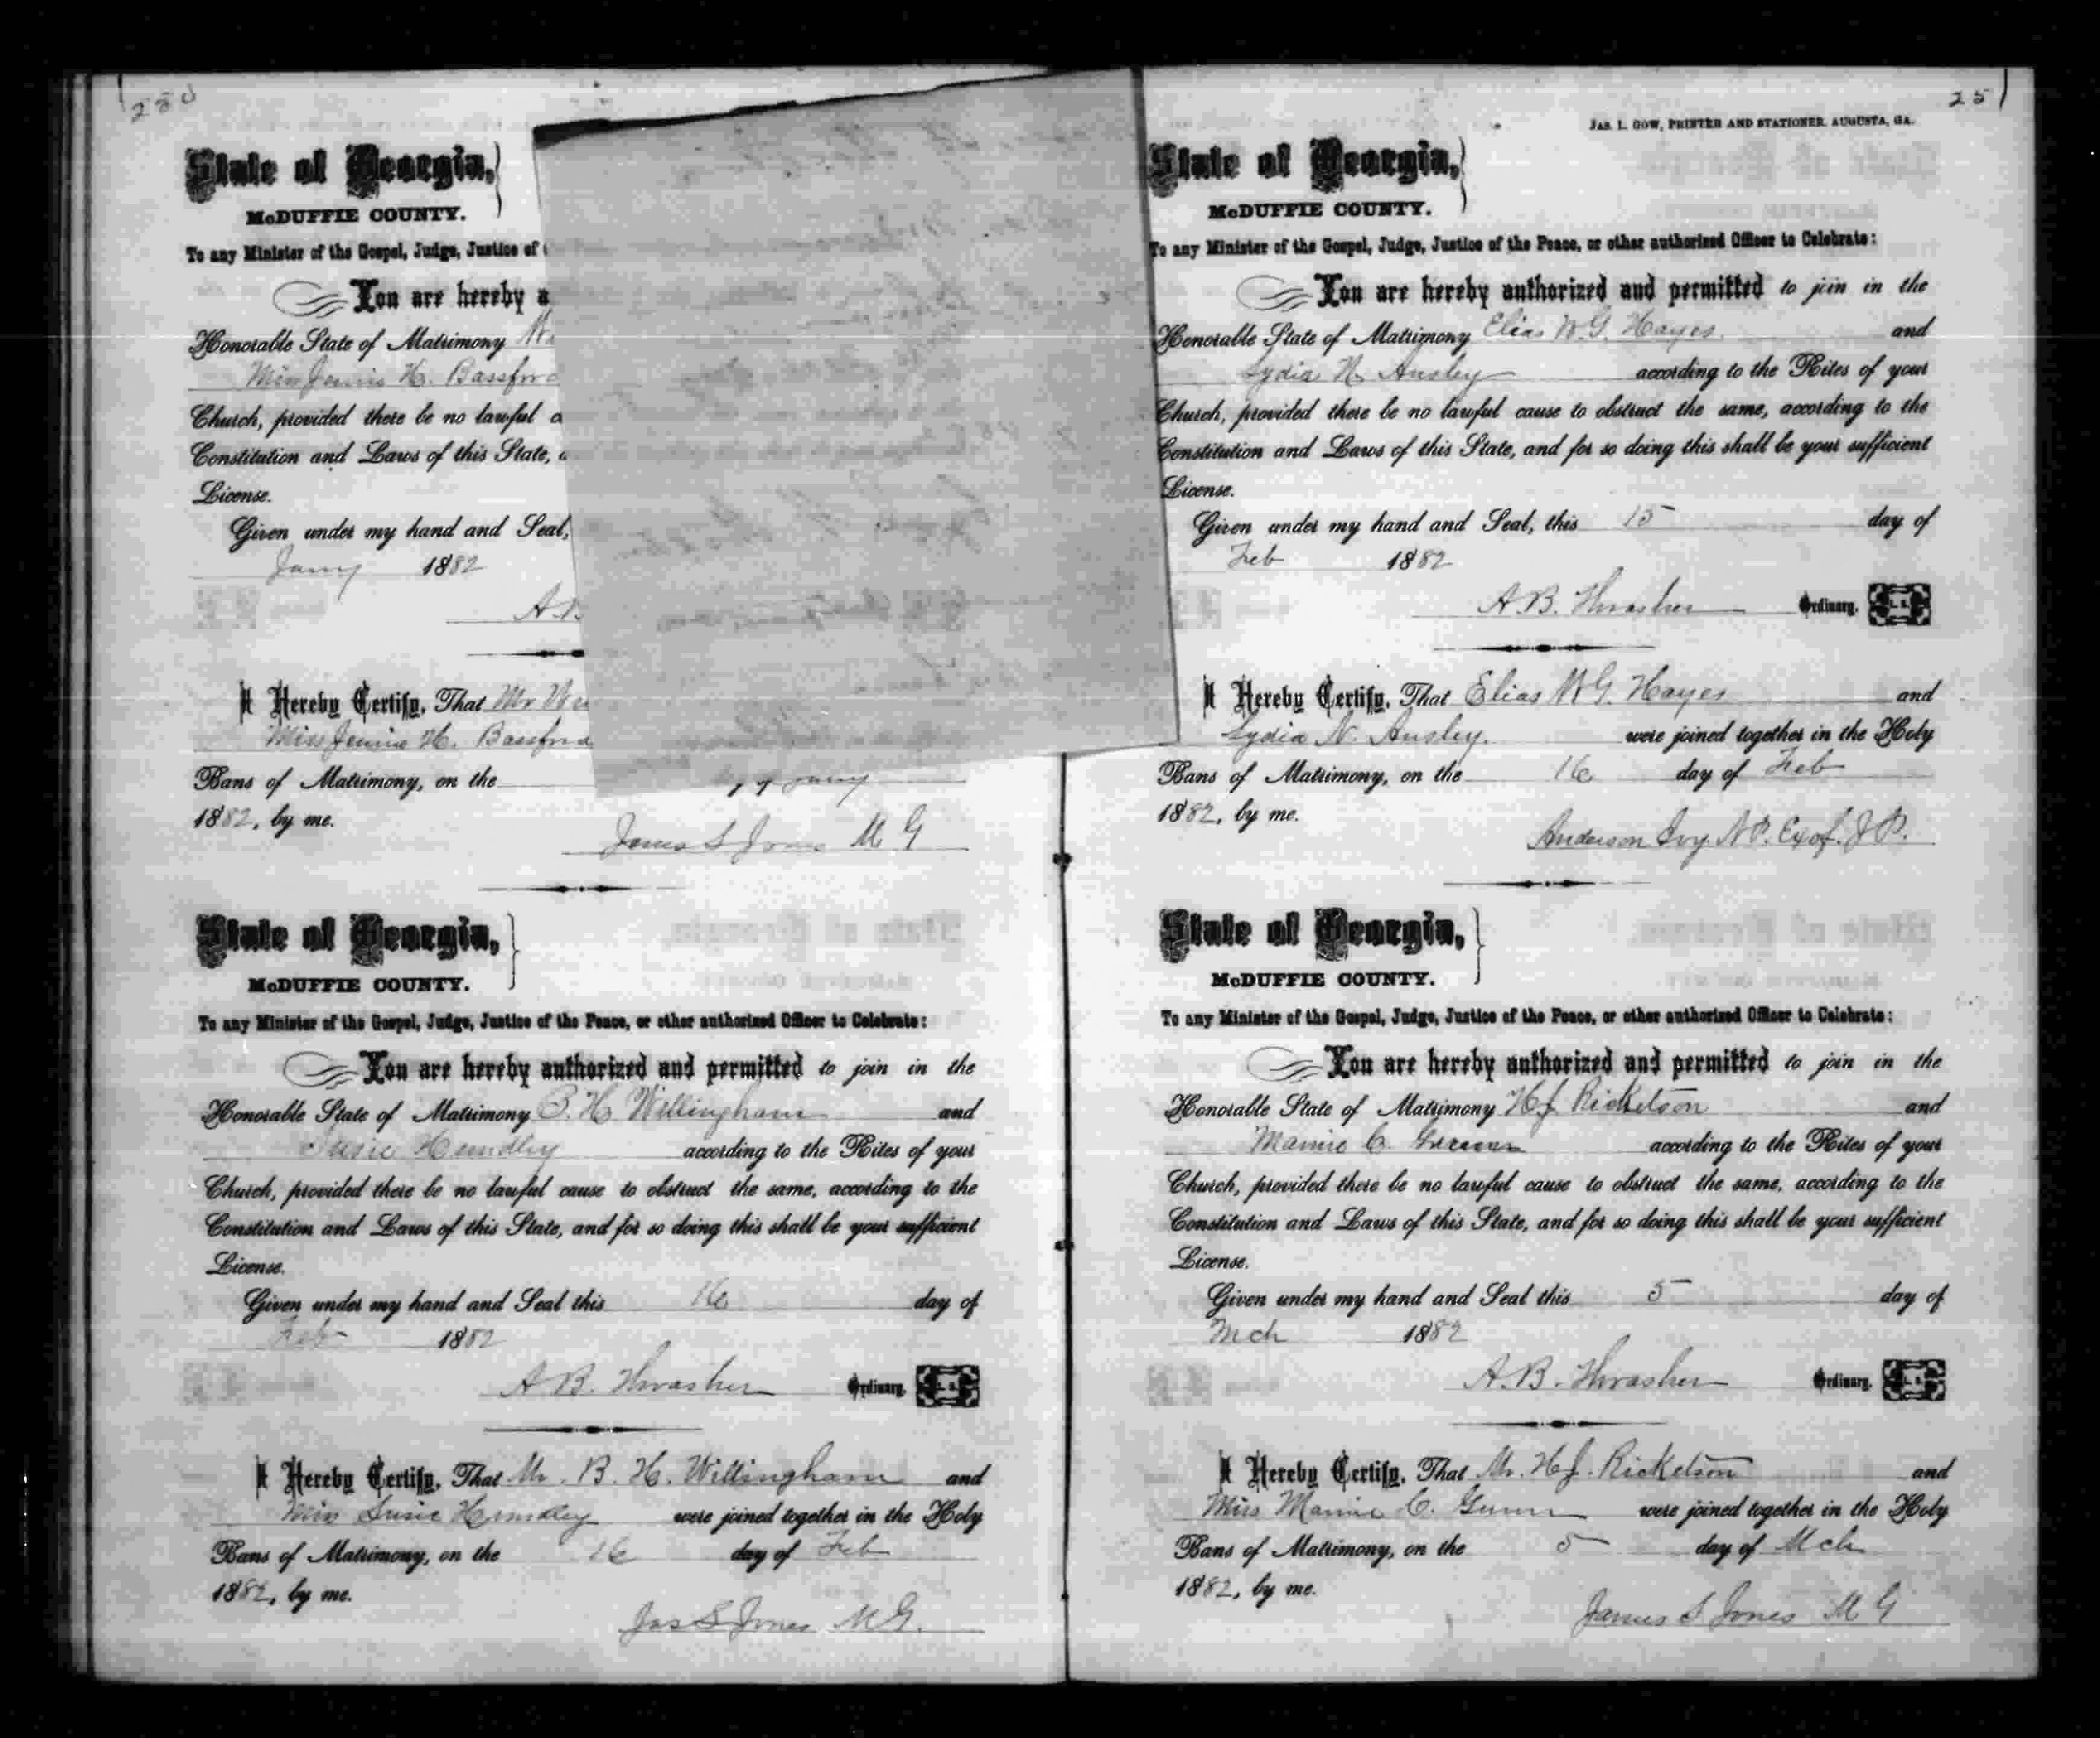 State of Georgia,
McDUFFIE COUNTY.
To any Minister of the Gospel, Judge, Justice of
You are hereby a
Honorable State of Matrimony
Miss Jennie H. Bassford
Church, provided there be no lawful
Constitution and Laws of this State,
License.
Given under my hand and Seal,
Jany 1882
A.B
I Hereby Certify, That Mr
Miss Jennie H. Bassford
Bans of Matrimony, on the
1882, by me.
James S Jones M G
State of Georgia,
McDUFFIE COUNTY.
To any Minister of the Gospel, Judge, Justice of the Peace, or other authorized Officer to Celebrate:
You are hereby authorized and permitted to join in the
Honorable State of Matrimony B. H. Willingham and
Susie Hundley according to the Rites of your
Church, provided there be no lawful cause to obstruct the same, according to the
Constitution and Laws of this State, and for so doing this shall be your sufficient
License.
Given under my hand and Seal this 16 day of
Feb 1882
A.B. Thrasher Ordinary.
I Hereby Certify, That Mr. B. H. Willingham and
Miss Susie Hundley were joined together in the Holy
Bans of Matrimony, on the 16 day of Feb
1882, by me.
Jas S Jones M.G.
251
JAS. L. GOW, PRINTER AND STATIONER, AUGUSTA, GA.
State of Georgia,
McDUFFIE COUNTY.
To any Minister of the Gospel, Judge, Justice of the Peace, or other authorized Officer to Celebrate:
You are hereby authorized and permitted to join in the
Honorable State of Matrimony Elias W.G. Hayes and
Lydia N. Ansley according to the Rites of your
Church, provided there be no lawful cause to obstruct the same, according to the
Constitution and Laws of this State, and for so doing this shall be your sufficient
License.
Given under my hand and Seal, this 15 day of
Feb 1882
A.B. Thrasher Ordinary.
I Hereby Certify, That Elias W.G. Hayes and
Lydia N. Ansley. were joined together in the Holy
Bans of Matrimony, on the 16 day of Feb
1882, by me.
Anderson Ivy. N.P. Ex of. J P.
State of Georgia,
McDUFFIE COUNTY.
To any Minister of the Gospel, Judge, Justice of the Peace, or other authorized Officer to Celebrate:
You are hereby authorized and permitted to join in the
Honorable State of Matrimony H J. Ricketson and
Mamie C. according to the Rites of your
Church, provided there be no lawful cause to obstruct the same, according to the
Constitution and Laws of this State, and for so doing this shall be your sufficient
License.
Given under my hand and Seal this 5 day of
Mch 1882
A.B. Thrasher Ordinary.
I Hereby Certify, That Mr. H J. Ricketson and
Miss Mamie C. Gunn were joined together in the Holy
Bans of Matrimony, on the 5 day of Mch
1882, by me.
James S Jones M G